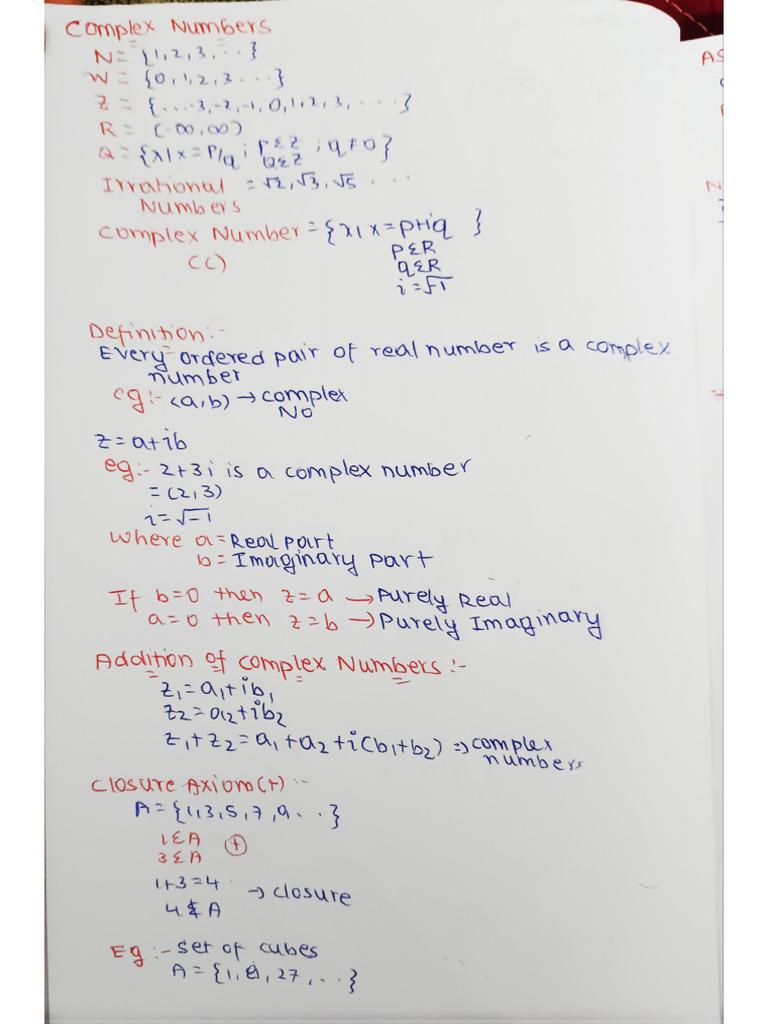 Complex Numbers
N = {1, 2, 3, ...}
W = {0, 1, 2, 3 ....}
Z = {....-3, -2, -1, 0, 1, 2, 3, ....}
R = (-∞, ∞)
Q = {x | x = P/q ; P∈Z ; q≠0}
Q∈Z
Irrational = √2, √3, √5 ...
Numbers
Complex Number = {x | x = p+iq }
(C) P∈R
q∈R
i = √-1
Definition:-
Every ordered pair of real number is a complex
number
eg:- (a,b) → complex
No
z = a+ib
eg:- 2+3i is a complex number
= (2,3)
i = √-1
where a = Real part
b = Imaginary part
If b=0 then z=a → Purely Real
a=0 then z=b → Purely Imaginary
Addition of complex Numbers:-
z₁ = a₁+ib₁
z₂ = a₂+ib₂
z₁+z₂ = a₁+a₂+i(b₁+b₂) ⇒ complex
numbers
Closure Axiom(+):-
A = {1,3,5,7,9...}
1∈A
3∈A (+)
1+3=4 → closure
4∉A
Eg:- set of cubes
A = {1, 8, 27, ...}
AS
N